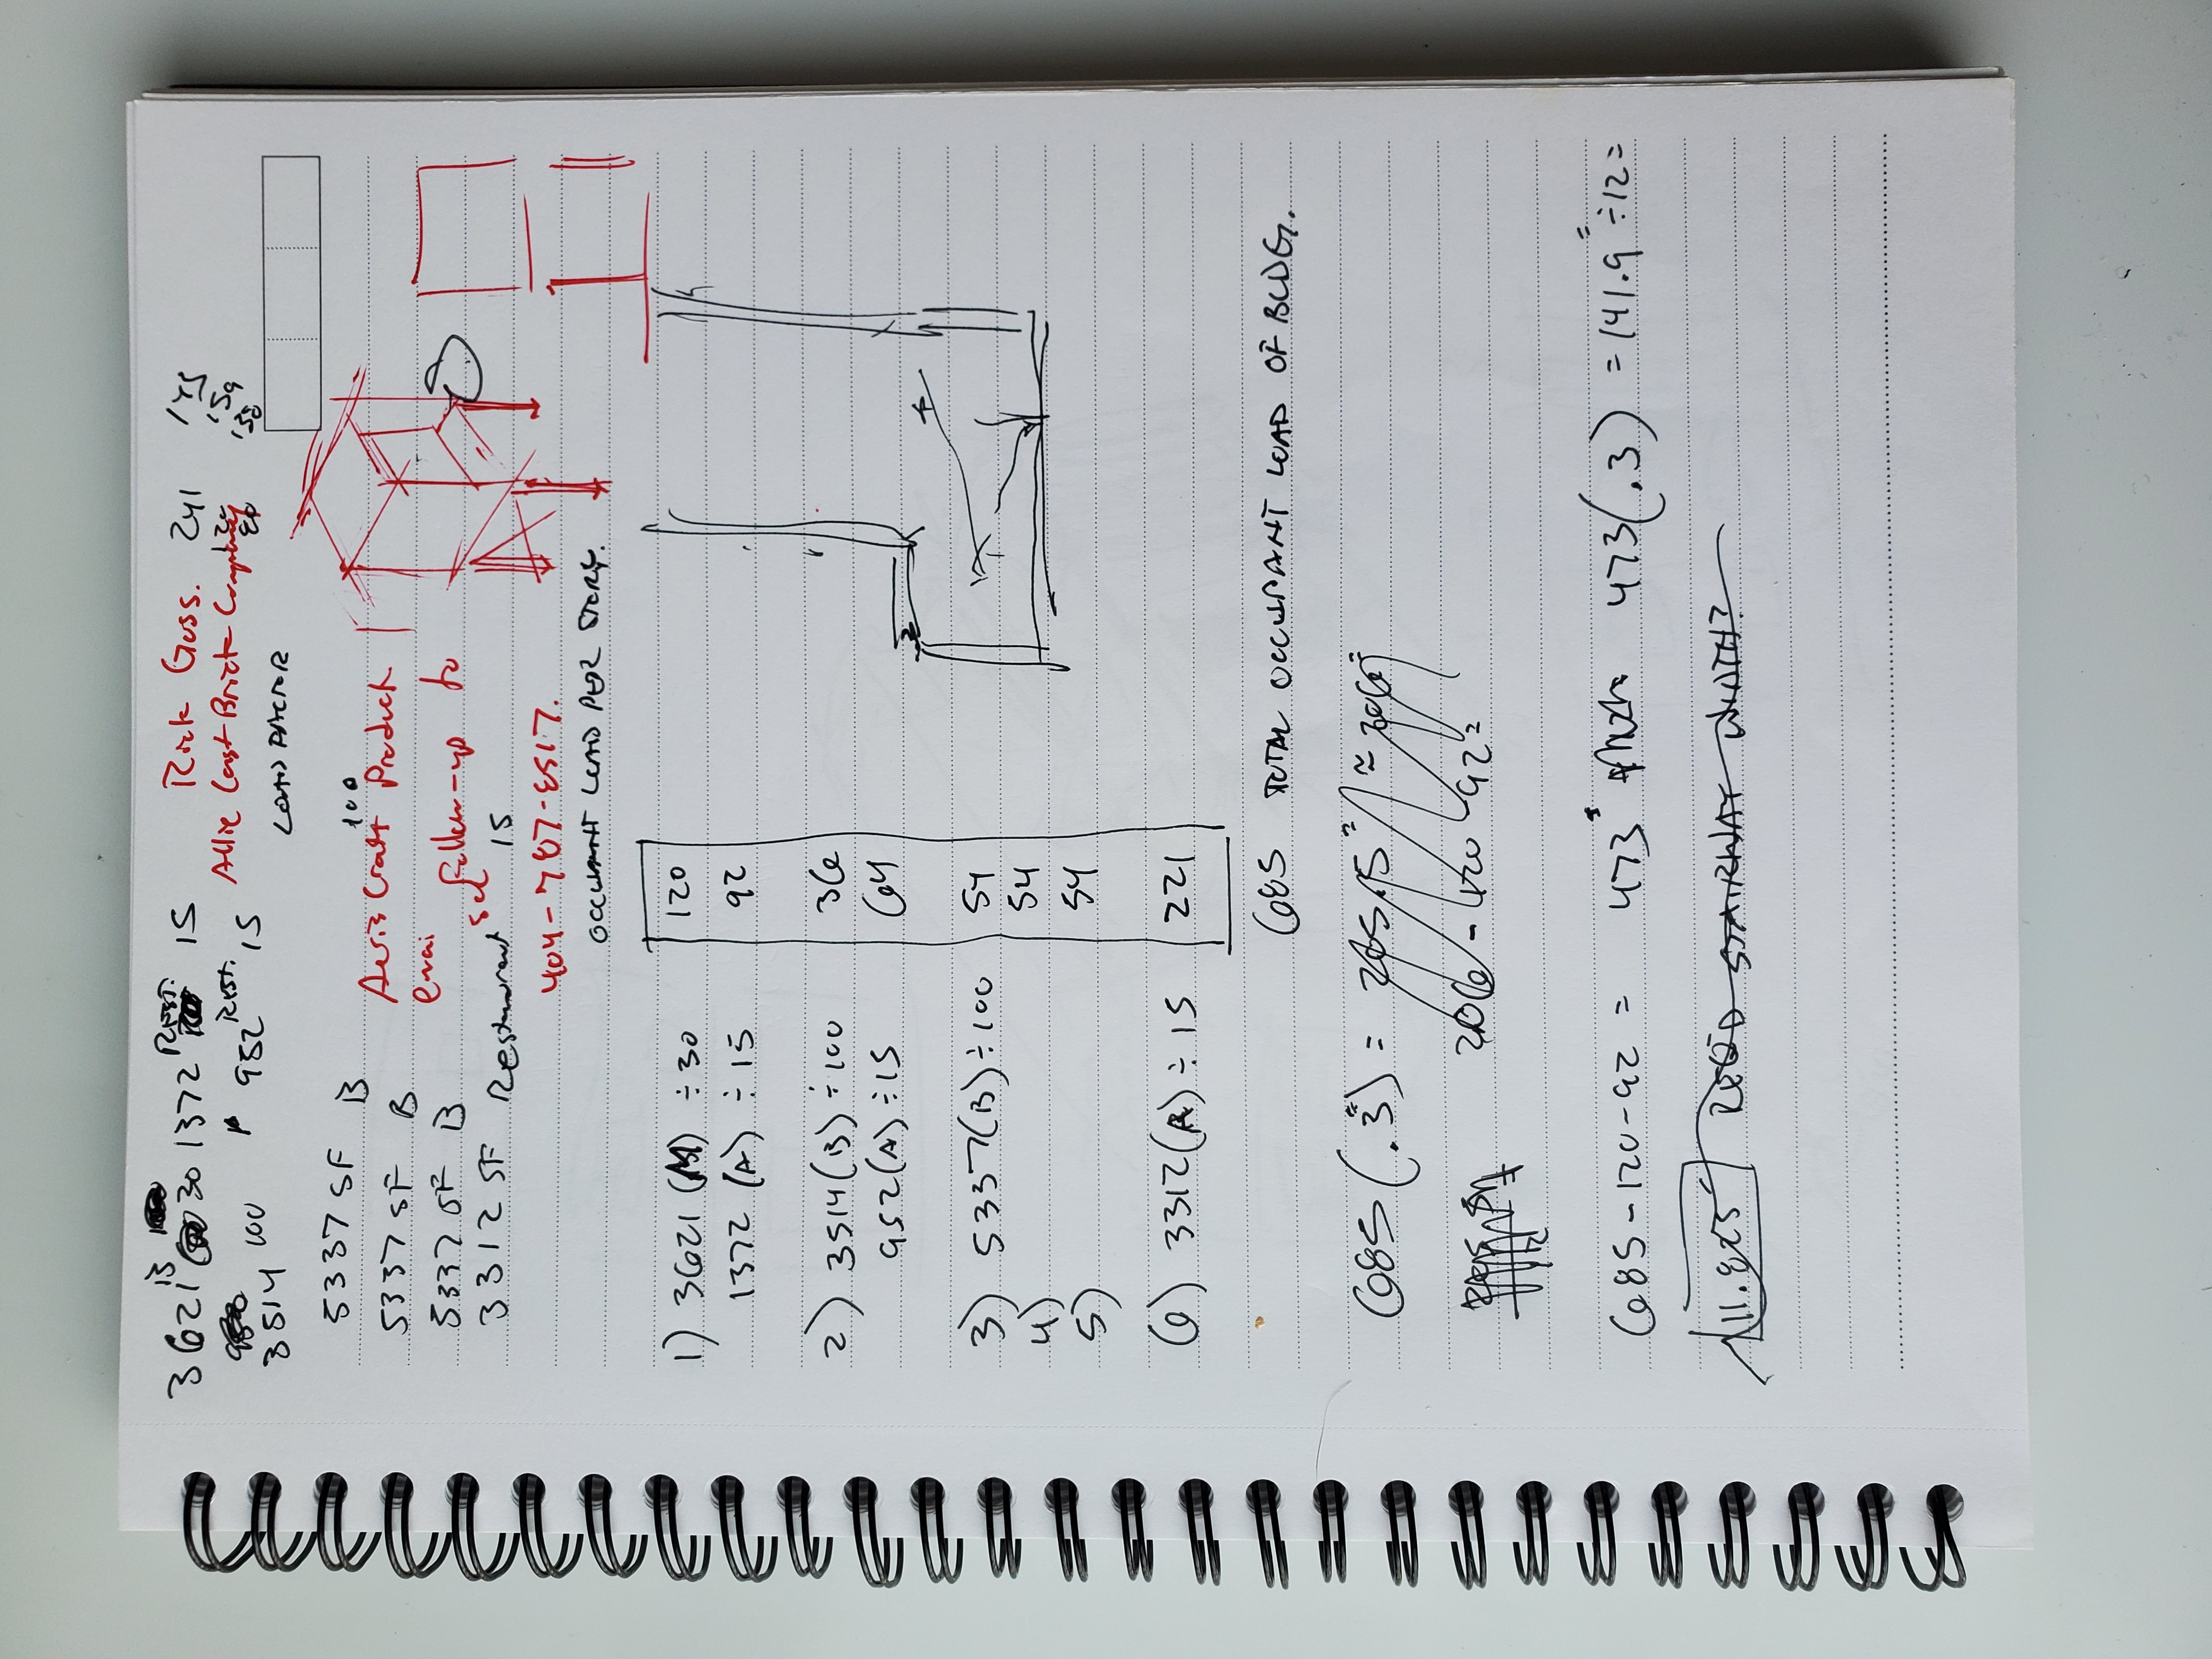 3621 B 30 1372 Rest. 15 Rick Goss. 241 145
3514 100 952 Rest. 15 159
LOAD FACTOR 135
5337 SF B 100
5337 SF B
5337 SF B
3312 SF Restaurant 15
Product
follow-up to
404-787-8517.
OCCUPANT LOAD PER STORY.
1) 3621 (M) ÷ 30 120
1372 (A) ÷ 15 92
2) 3514 (B) ÷ 100 36
952 (A) ÷ 15 64
3) 5337 (B) ÷ 100 54
4) 54
5) 54
6) 3312 (A) ÷ 15 221
685 TOTAL OCCUPANT LOAD OF BLDG.
685 (.3") = 205.5" ≈ 206"
206 - 120 92
685 - 120 - 92 = 473 473 (.3) = 141.9" ÷ 12 =
11.825 REQ'D STAIRWAY WIDTH?